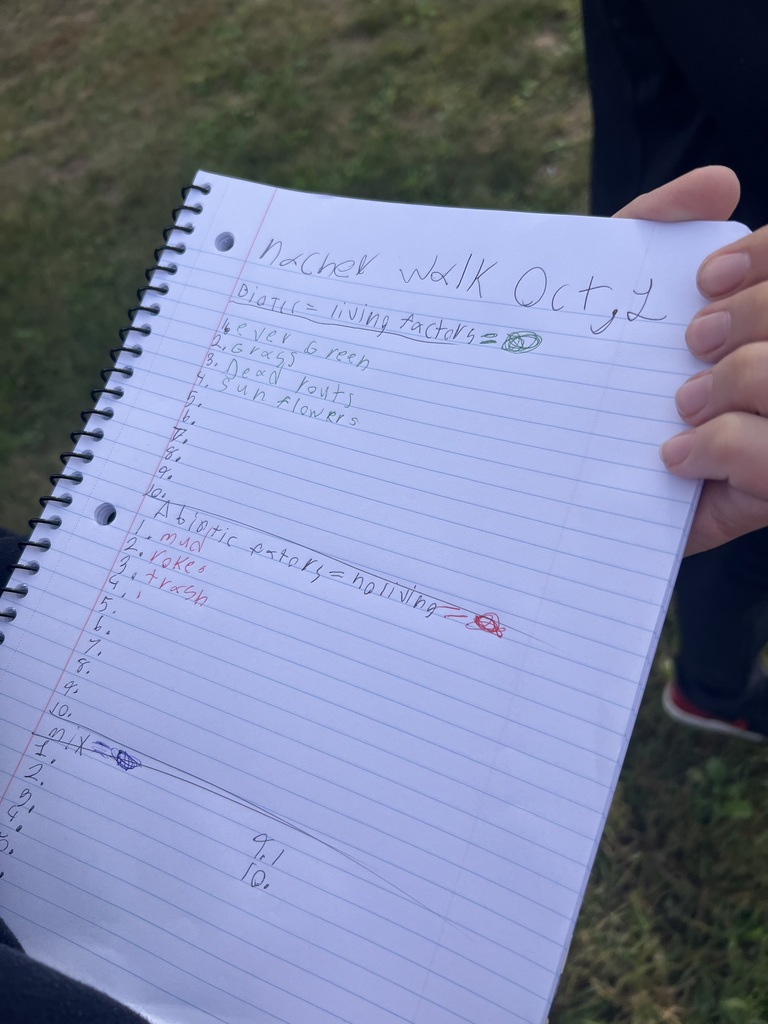 nacher walk Oct, 1
Biotic = living factors =
1. ever Green
2. Grass
3. Dead routs
4. Sun flowers
5.
6.
7.
8.
9.
10.
Abiotic factors = noliving =
1. mud
2. rokes
3. trash
4.
5.
6.
7.
8.
9.
10.
mix =
1.
2.
3.
4.
5.
9.
10.